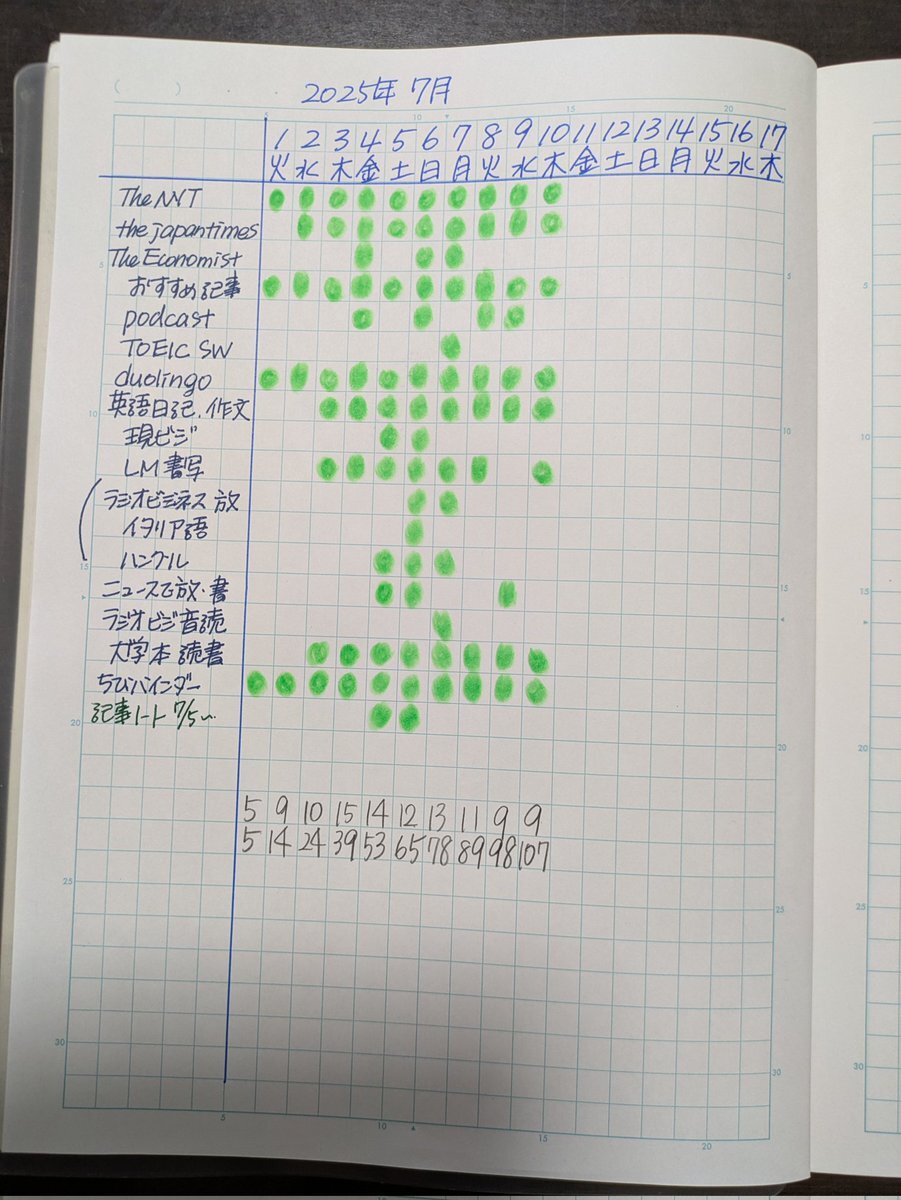 2025年 7月
1 2 3 4 5 6 7 8 9 10 11 12 13 14 15 16 17
火 水 木 金 土 日 月 火 水 木 金 土 日 月 火 水 木
The NYT
the japantimes
The Economist
おすすめ記事
podcast
TOEIC SW
duolingo
英語日記.作文
現ビジ
LM 書写
ラジオビジネス 放
イタリア語
ハングル
ニュースで放・書
ラジオビジ音読
大学本 読書
ちびバインダー
記事ノート 7/5〜
5 9 10 15 14 12 13 11 9 9
5 14 24 39 53 65 78 89 98 107